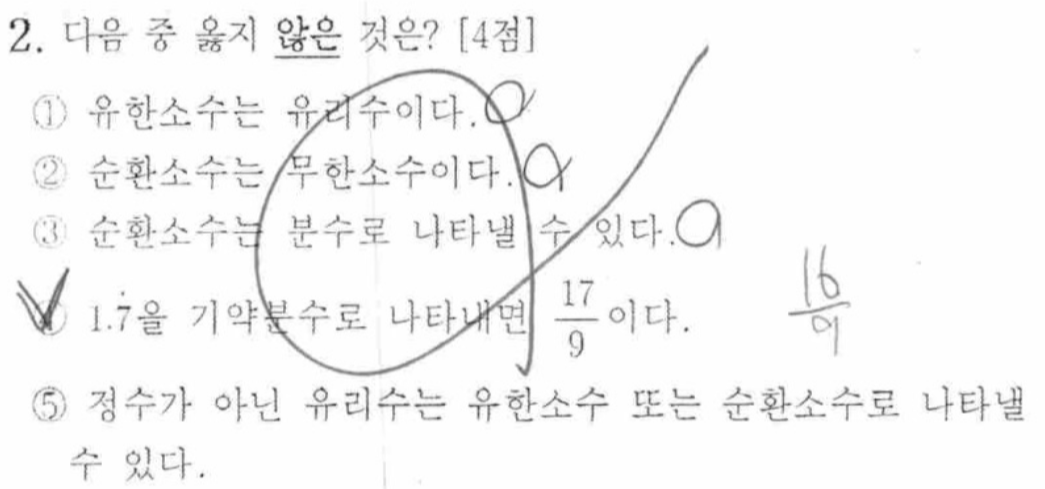 2. 다음 중 옳지 않은 것은? [4점]
① 유한소수는 유리수이다. O
② 순환소수는 무한소수이다. O
③ 순환소수는 분수로 나타낼 수 있다. O
④ 1.7̇을 기약분수로 나타내면 17/9 이다. 16/9
⑤ 정수가 아닌 유리수는 유한소수 또는 순환소수로 나타낼
수 있다.